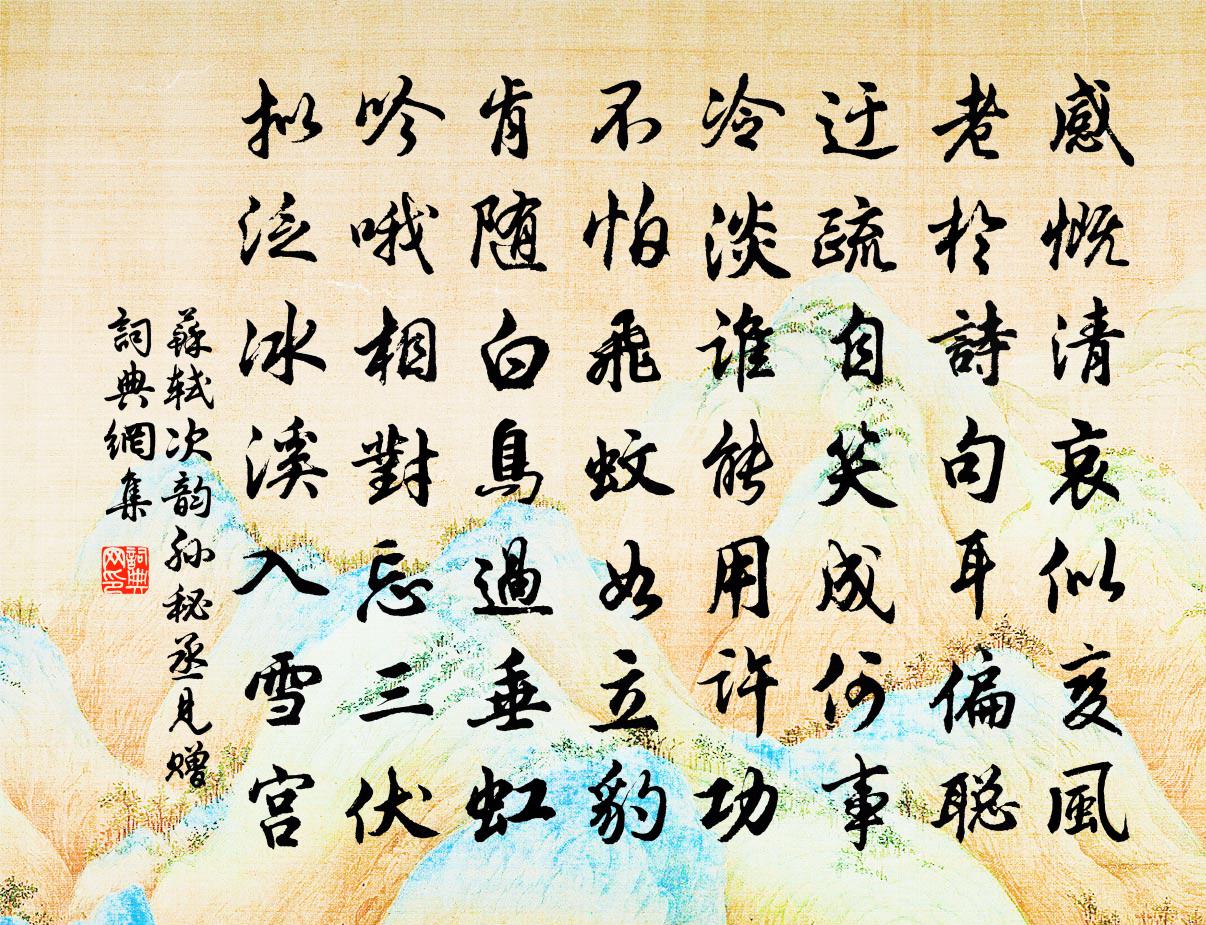 感慨清哀似变風
老於詩句耳偏聡
迂疏自笑成何事
冷淡谁能用许功
不怕飛蚊如立豹
肯随白鳥過垂虹
吟哦相對忘三伏
拟泛冰溪入雪宫
蘇轼次韵孙秘丞見赠
詞典網集
詞典网印